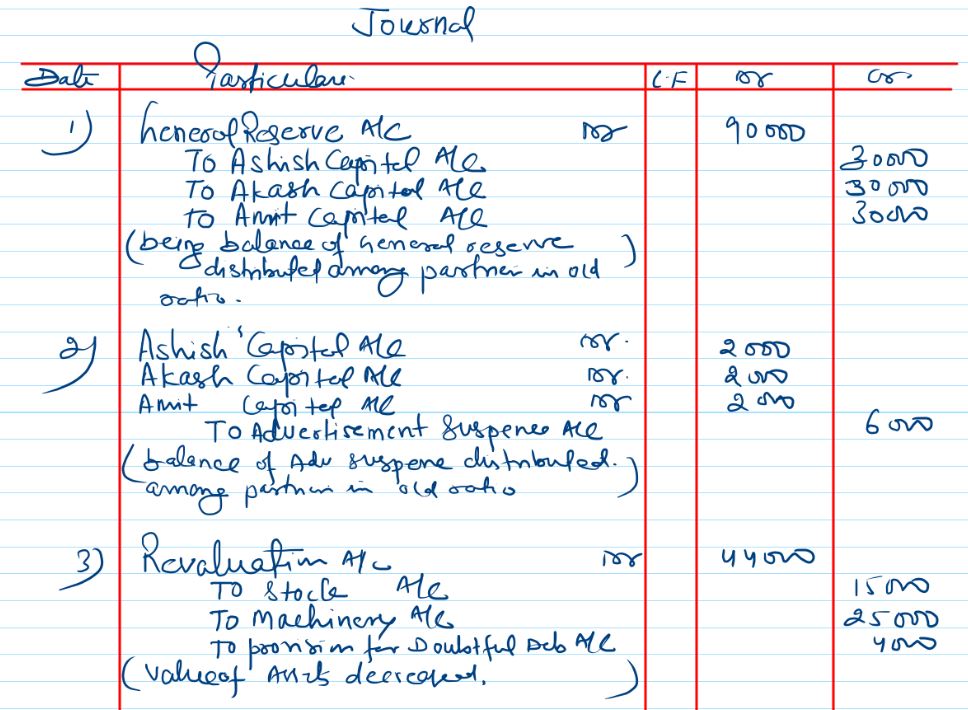 Journal
Date Particulars L.F Dr Cr.
1) General Reserve A/C Dr 90000
To Ashish Capital A/C 30000
To Akash Capital A/C 30000
To Amit Capital A/C 30000
(being balance of General reserve
distributed among partner in old
ratio.)
2) Ashish Capital A/C Dr. 2000
Akash Capital A/C Dr. 2000
Amit Capital A/C Dr 2000
To Advertisement Suspense A/C 6000
(balance of Adv suspene distributed.
among partner in old ratio)
3) Revaluation A/C Dr 44000
To Stock A/C 15000
To Machinery A/C 25000
To provision for Doubtful Deb A/C 4000
(value of Assets decreased.)